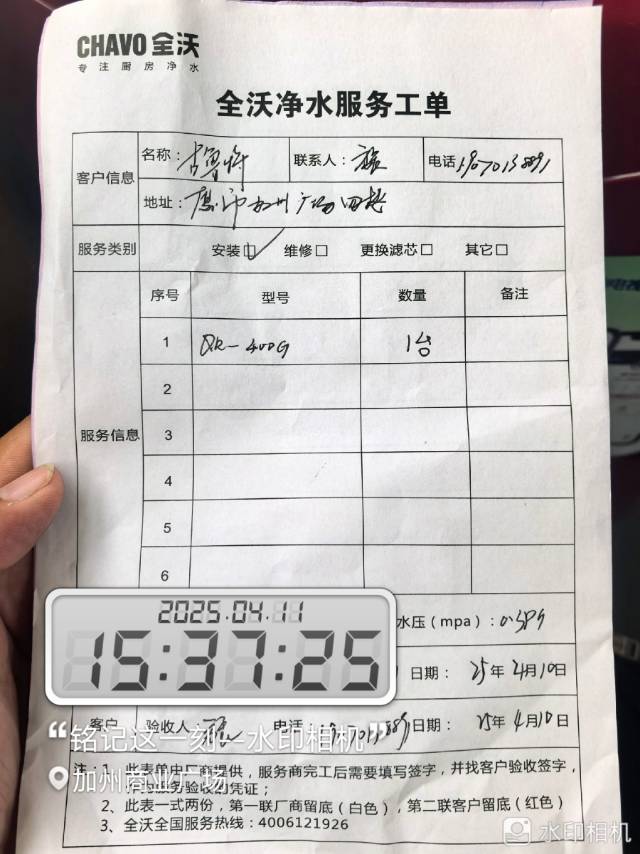 CHAVO 全沃
专注厨房净水
全沃净水服务工单
客户信息 名称: 联系人: 电话
地址: 广场四楼
服务类别 安装☑ 维修□ 更换滤芯□ 其它□
服务信息 序号 型号 数量 备注
1 QR-400G 1台
2
3
4
5
6
水压(mpa):
日期: 25年4月10日
客户 验收人: 电话: 日期: 25年4月10日
注:1、此表单由厂商提供,服务商完工后需要填写签字,并找客户验收签字,
验收的凭证;
2、此表一式两份,第一联厂商留底(白色),第二联客户留底(红色)
3、全沃全国服务热线:4006121926
2025.04.11
15:37:25
“铭记这一刻—水印相机”
加州商业广场
水印相机